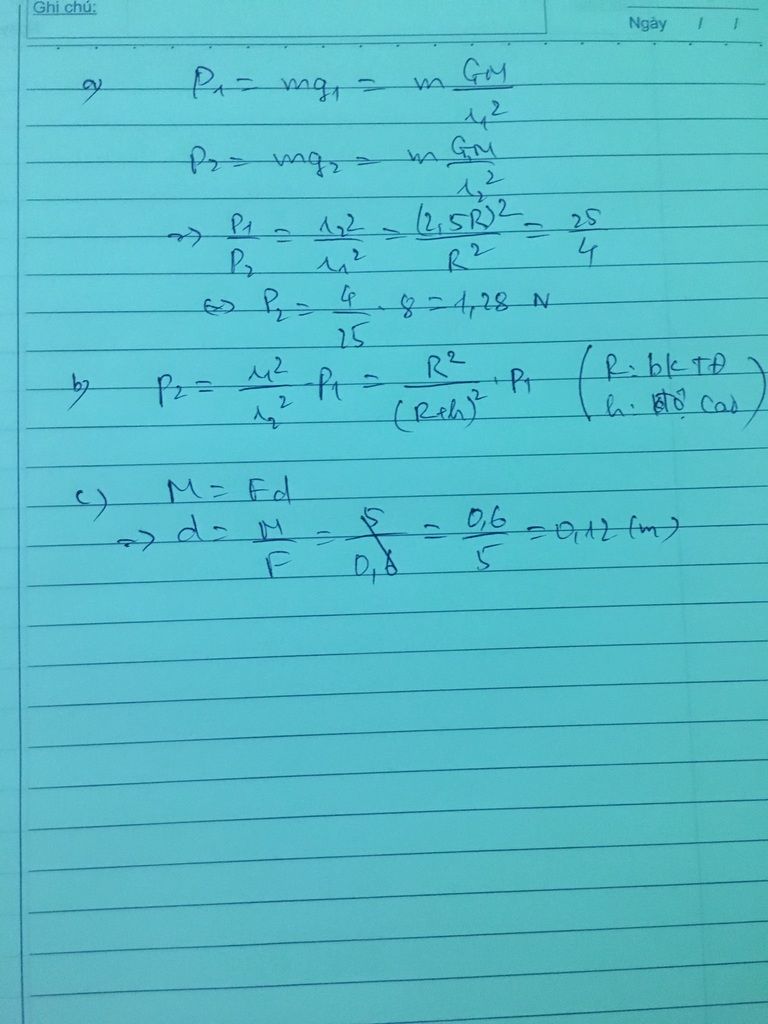 Ghi chú:
Ngày / /
a) P₁ = mg₁ = m GM/r₁²
P₂ = mg₂ = m GM/r₂²
=> P₁/P₂ = r₂²/r₁² = (2,5R)²/R² = 25/4
<=> P₂ = 4/25 . 8 = 1,28 N
b) P₂ = r₁²/r₂² . P₁ = R²/(R+h)² . P₁ (R: bk TĐ
h: độ cao)
c) M = Fd
=> d = M/F = 5/0,6 = 0,6/5 = 0,12 (m)